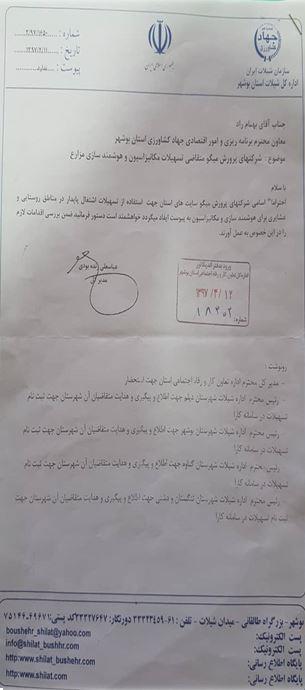 جهاد
کشاورزی
سازمان شیلات ایران
اداره کل شیلات استان بوشهر
جمهوری اسلامی ایران
شماره :
تاریخ :
پیوست :
جناب آقای بهنام راد
معاون محترم برنامه ریزی و امور اقتصادی جهاد کشاورزی استان بوشهر
موضوع : شرکتهای پرورش میگو متقاضی تسهیلات مکانیزاسیون و هوشمند سازی مزارع
با سلام
احتراما" اسامی شرکتهای پرورش میگو سایت های استان جهت استفاده از تسهیلات اشتغال پایدار در مناطق روستایی و
عشایری برای هوشمند سازی و مکانیزاسیون به پیوست ایفاد میگردد خواهشمند است دستور فرمائید ضمن بررسی اقدامات لازم
را در این خصوص به عمل آورند.
مدیر کل
ورود به دفتر
اداره کل تعاون کار و رفاه اجتماعی استان بوشهر
شماره:
رونوشت :
- مدیر کل محترم اداره تعاون کار و رفاه اجتماعی استان جهت استحضار
- رئیس محترم اداره شیلات شهرستان دیلم جهت اطلاع و پیگیری و هدایت متقاضیان آن شهرستان جهت ثبت نام
تسهیلات در سامانه کارا
- رئیس محترم اداره شیلات شهرستان بوشهر جهت اطلاع و پیگیری و هدایت متقاضیان آن شهرستان جهت ثبت نام
تسهیلات در سامانه کارا
- رئیس محترم اداره شیلات شهرستان گناوه جهت اطلاع و پیگیری و هدایت متقاضیان آن شهرستان جهت ثبت نام
تسهیلات در سامانه کارا
- رئیس محترم اداره شیلات شهرستان تنگستان و دشتی جهت اطلاع و پیگیری و هدایت متقاضیان آن شهرستان جهت
ثبت نام تسهیلات در سامانه کارا
بوشهر - بزرگراه طالقانی - میدان شیلات - تلفن : ۶۱-۳۳۳۲۳۴۵۹ دورنگار: ۳۳۳۲۷۶۴۷ کد پستی: ۴۹۶۷۱-۷۵۱۴۶
پست الکترونیک: boushehr_shilat@yahoo.com
پست الکترونیک: info@shilat_bushhr.com
پایگاه اطلاع رسانی: http:www.shilat_bushehr.com
پایگاه اطلاع رسانی: http:www.shilat.com